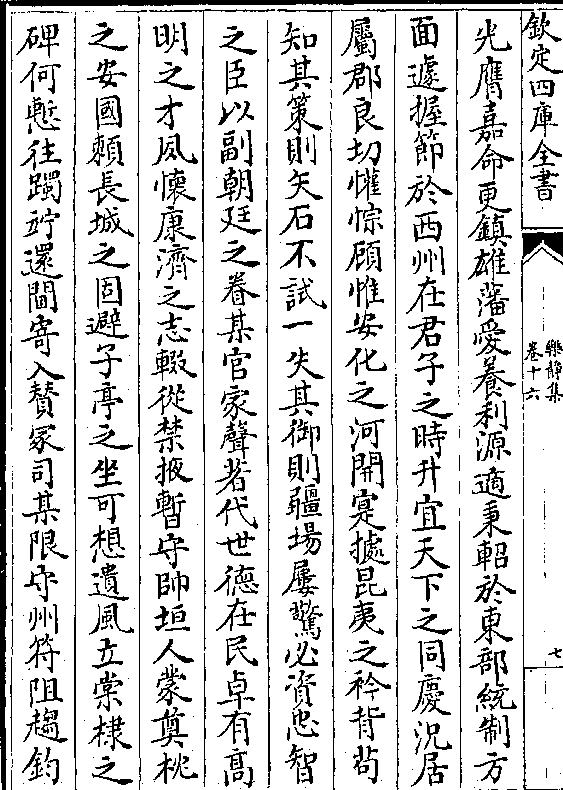 欽定四庫全書
樂静集
卷十六
七
光膺嘉命更鎮雄藩愛養利源適秉軺於東部統制方
面遽握節於西州在君子之時升宜天下之同慶況居
屬郡良切懽悰顧惟安化之河開寔據昆夷之衿背茍
知其策則矢石不試一失其御則疆場屢驚必資忠智
之臣以副朝廷之眷某官家聲著代世德在民卓有高
明之才夙懷康濟之志輟從禁掖暫守帥垣人蒙奠枕
之安國頼長城之固避子亭之坐可想遺風立棠棣之
碑何慙往躅竚還閫寄入賛冢司某限守州符阻趨鈞